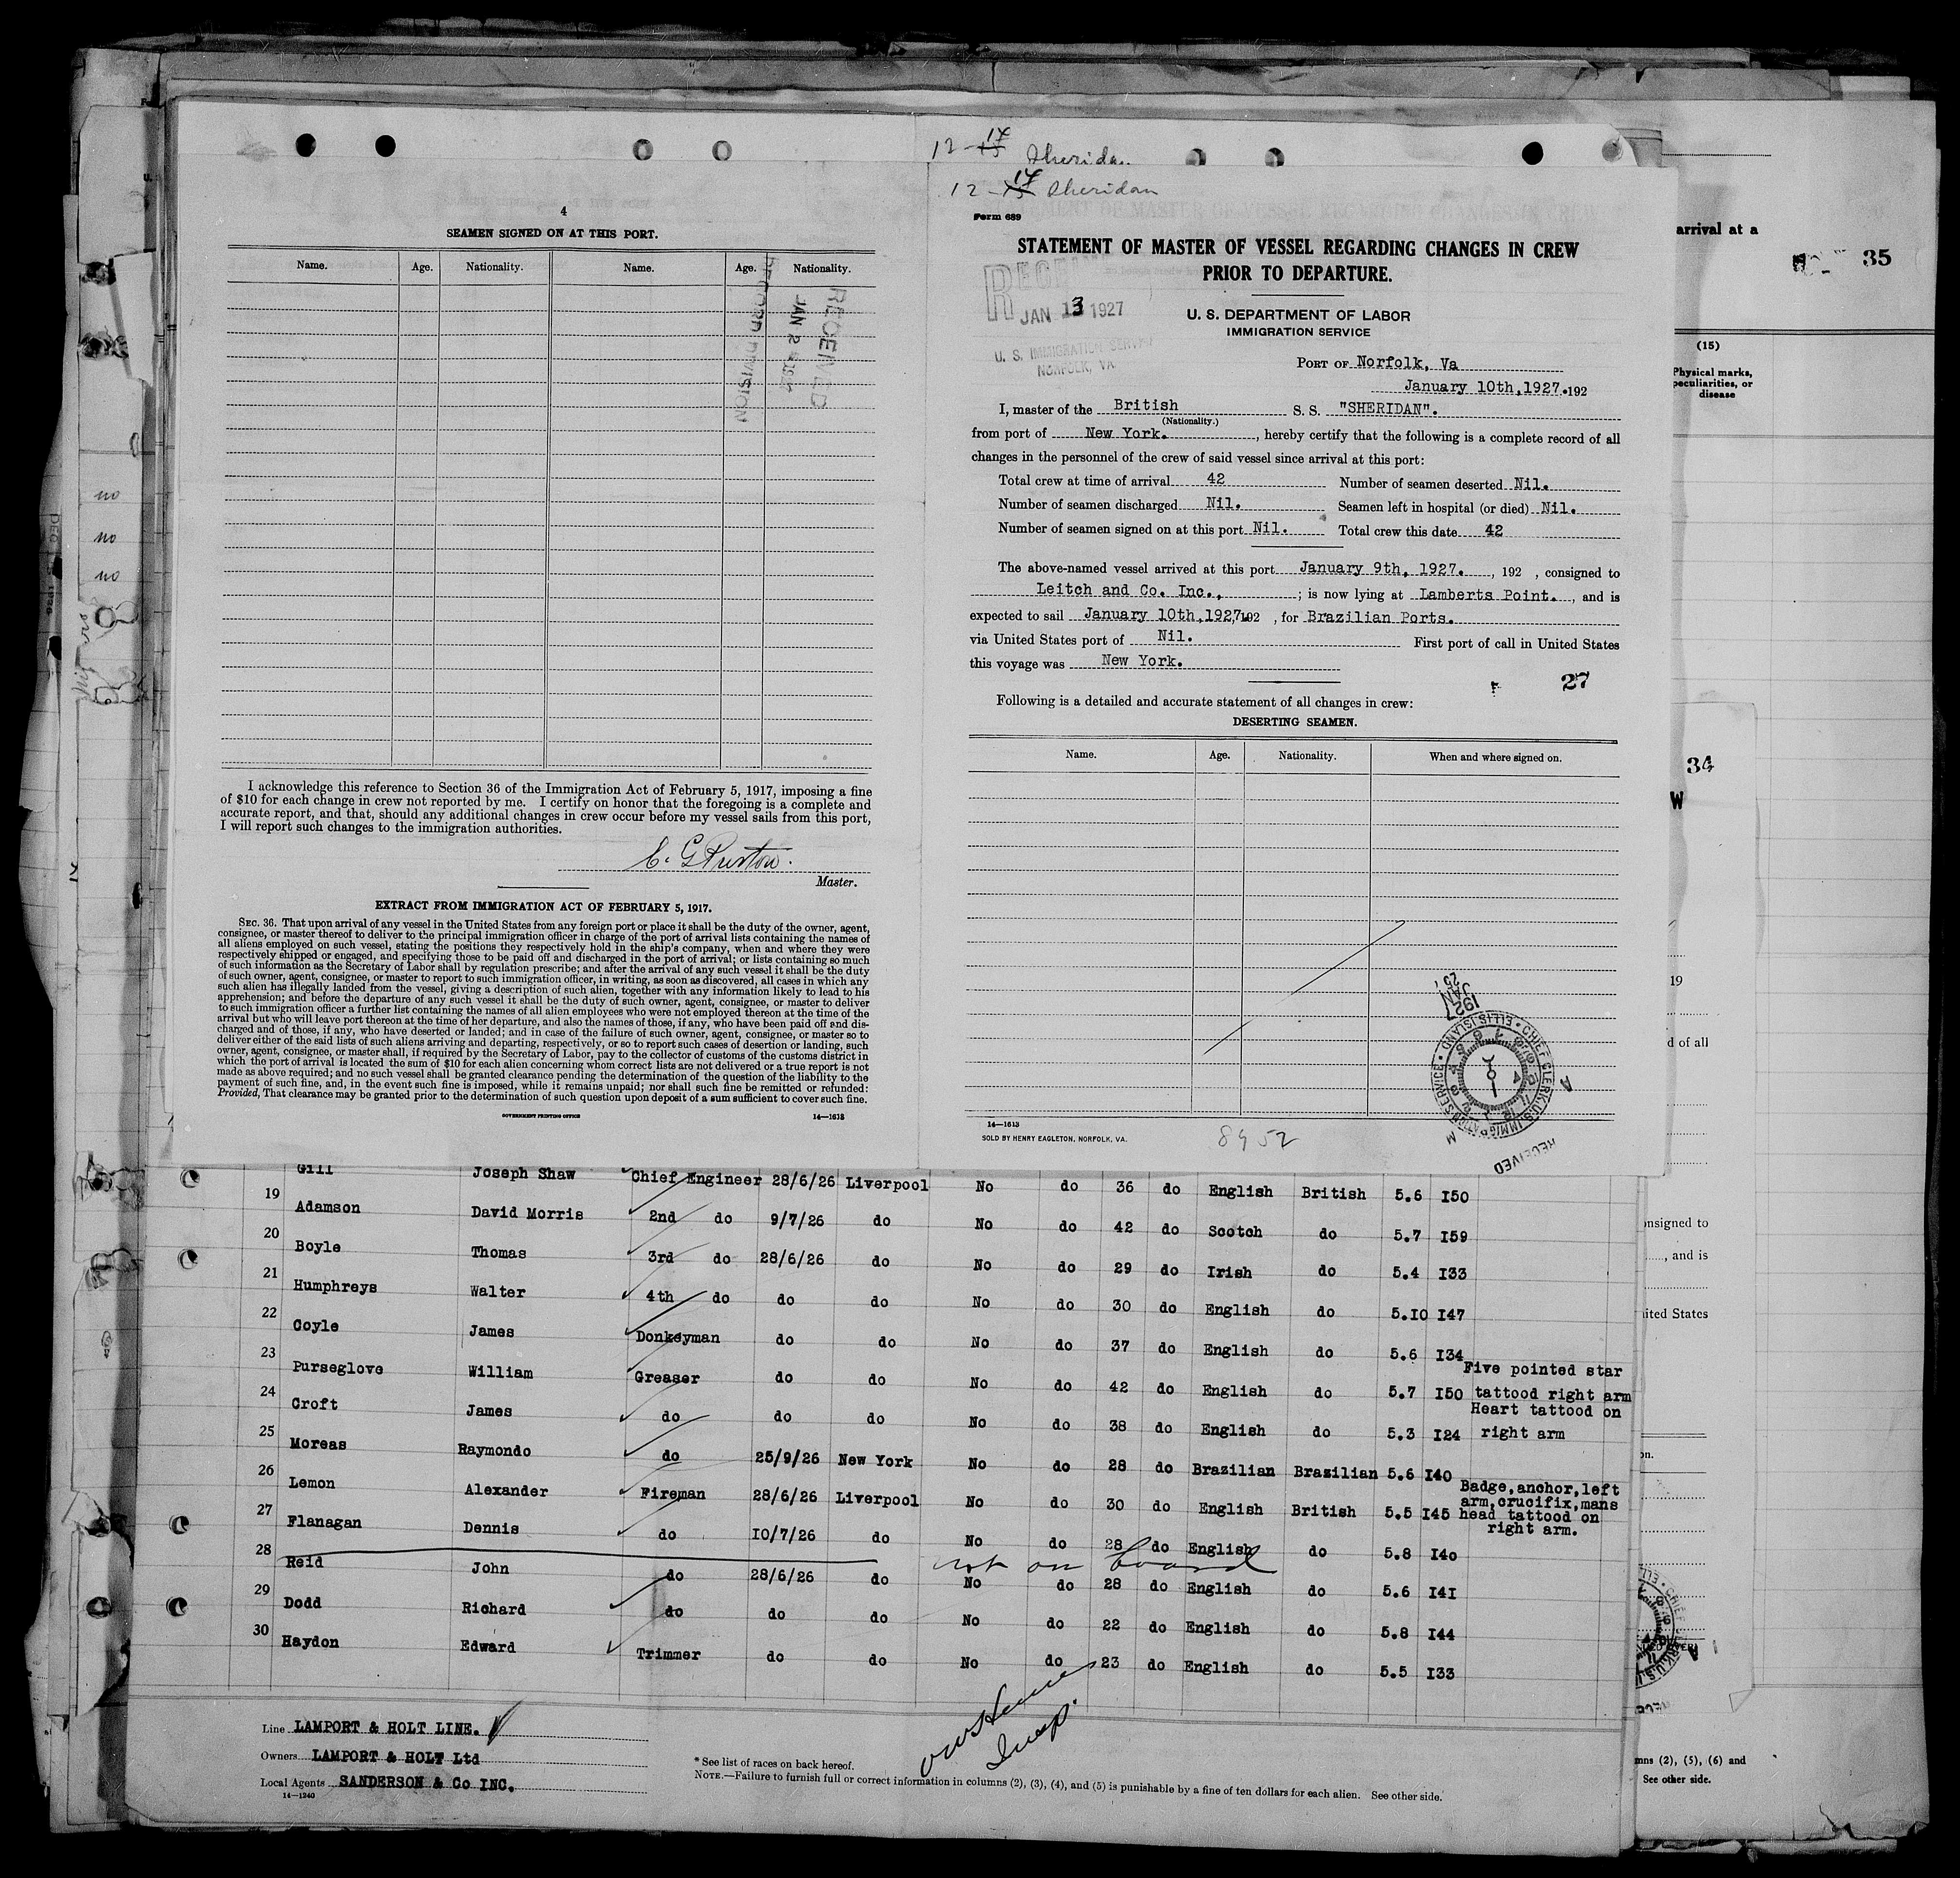 12-14 Sheridan
12-14 Sheridan
4
SEAMEN SIGNED ON AT THIS PORT.
Name. Age. Nationality. Name. Age. Nationality.
RECEIVED
JAN 2
RECORD DIVISION
I acknowledge this reference to Section 36 of the Immigration Act of February 5, 1917, imposing a fine
of $10 for each change in crew not reported by me. I certify on honor that the foregoing is a complete and
accurate report, and that, should any additional changes in crew occur before my vessel sails from this port,
I will report such changes to the immigration authorities.
C. G Preston.
Master.
EXTRACT FROM IMMIGRATION ACT OF FEBRUARY 5, 1917.
SEC. 36. That upon arrival of any vessel in the United States from any foreign port or place it shall be the duty of the owner, agent,
consignee, or master thereof to deliver to the principal immigration officer in charge of the port of arrival lists containing the names of
all aliens employed on such vessel, stating the positions they respectively hold in the ship's company, when and where they were
respectively shipped or engaged, and specifying those to be paid off and discharged in the port of arrival; or lists containing so much
of such information as the Secretary of Labor shall by regulation prescribe; and after the arrival of any such vessel it shall be the duty
of such owner, agent, consignee, or master to report to such immigration officer, in writing, as soon as discovered, all cases in which any
such alien has illegally landed from the vessel, giving a description of such alien, together with any information likely to lead to his
apprehension; and before the departure of any such vessel it shall be the duty of such owner, agent, consignee, or master to deliver
to such immigration officer a further list containing the names of all alien employees who were not employed thereon at the time of the
arrival but who will leave port thereon at the time of her departure, and also the names of those, if any, who have been paid off and dis-
charged and of those, if any, who have deserted or landed; and in case of the failure of such owner, agent, consignee, or master so to
deliver either of the said lists of such aliens arriving and departing, respectively, or so to report such cases of desertion or landing, such
owner, agent, consignee, or master shall, if required by the Secretary of Labor, pay to the collector of customs of the customs district in
which the port of arrival is located the sum of $10 for each alien concerning whom correct lists are not delivered or a true report is not
made as above required; and no such vessel shall be granted clearance pending the determination of the question of the liability to the
payment of such fine, and, in the event such fine is imposed, while it remains unpaid; nor shall such fine be remitted or refunded:
Provided, That clearance may be granted prior to the determination of such question upon deposit of a sum sufficient to cover such fine.
GOVERNMENT PRINTING OFFICE 14—1613
Form 689
STATEMENT OF MASTER OF VESSEL REGARDING CHANGES IN CREW
PRIOR TO DEPARTURE.
RECEIVED
JAN 13 1927
U. S. IMMIGRATION SERVICE
NORFOLK, VA
U. S. DEPARTMENT OF LABOR
IMMIGRATION SERVICE
PORT OF Norfolk, Va
January 10th, 1927. 192
I, master of the British S. S. "SHERIDAN".
(Nationality.)
from port of New York. , hereby certify that the following is a complete record of all
changes in the personnel of the crew of said vessel since arrival at this port:
Total crew at time of arrival 42 Number of seamen deserted Nil.
Number of seamen discharged Nil. Seamen left in hospital (or died) Nil.
Number of seamen signed on at this port Nil. Total crew this date 42
The above-named vessel arrived at this port January 9th, 1927. , 192 , consigned to
Leitch and Co. Inc., ; is now lying at Lamberts Point. , and is
expected to sail January 10th, 1927, 192 , for Brazilian Ports.
via United States port of Nil. First port of call in United States
this voyage was New York.
27
Following is a detailed and accurate statement of all changes in crew:
DESERTING SEAMEN.
Name. Age. Nationality. When and where signed on.
1927 JAN 25
CHIEF CLERK, U.S. IMMIGRATION SERVICE • ELLIS ISLAND
RECEIVED
14—1613
SOLD BY HENRY EAGLETON, NORFOLK, VA. 8952
Gill Joseph Shaw Chief Engineer 28/6/26 Liverpool No do 36 do English British 5.6 I50
19 Adamson David Morris 2nd do 9/7/26 do No do 42 do Scotch do 5.7 I59
20 Boyle Thomas 3rd do 28/6/26 do No do 29 do Irish do 5.4 I33
21 Humphreys Walter 4th do do do No do 30 do English do 5.IO I47
22 Coyle James Donkeyman do do No do 37 do English do 5.6 I34
23 Purseglove William Greaser do do No do 42 do English do 5.7 I50 Five pointed star tattood right arm
24 Croft James do do do No do 38 do English do 5.3 I24 Heart tattood on right arm
25 Moreas Raymondo do 25/9/26 New York No do 28 do Brazilian Brazilian 5.6 I40
26 Lemon Alexander Fireman 28/6/26 Liverpool No do 30 do English British 5.5 I45 Badge, anchor, left arm, crucifix, mans head tattood on right arm.
27 Flanagan Dennis do IO/7/26 do No do 28 do English do 5.8 I40
not on board
28 Reid John do 28/6/26 do No do 28 do English do 5.6 I4I
29 Dodd Richard do do do No do 22 do English do 5.8 I44
30 Haydon Edward Trimmer do do No do 23 do English do 5.5 I33
Line LAMPORT & HOLT LINE.
Owners LAMPORT & HOLT Ltd
Local Agents SANDERSON & Co INC.
14—1240
Insp.
* See list of races on back hereof.
NOTE.—Failure to furnish full or correct information in columns (2), (3), (4), and (5) is punishable by a fine of ten dollars for each alien. See other side.
arrival at a
35
(15)
Physical marks,
peculiarities, or
disease
34
W
19
d of all
onsigned to
, and is
nited States
on.
mns (2), (5), (6) and
See other side.
no
no
no